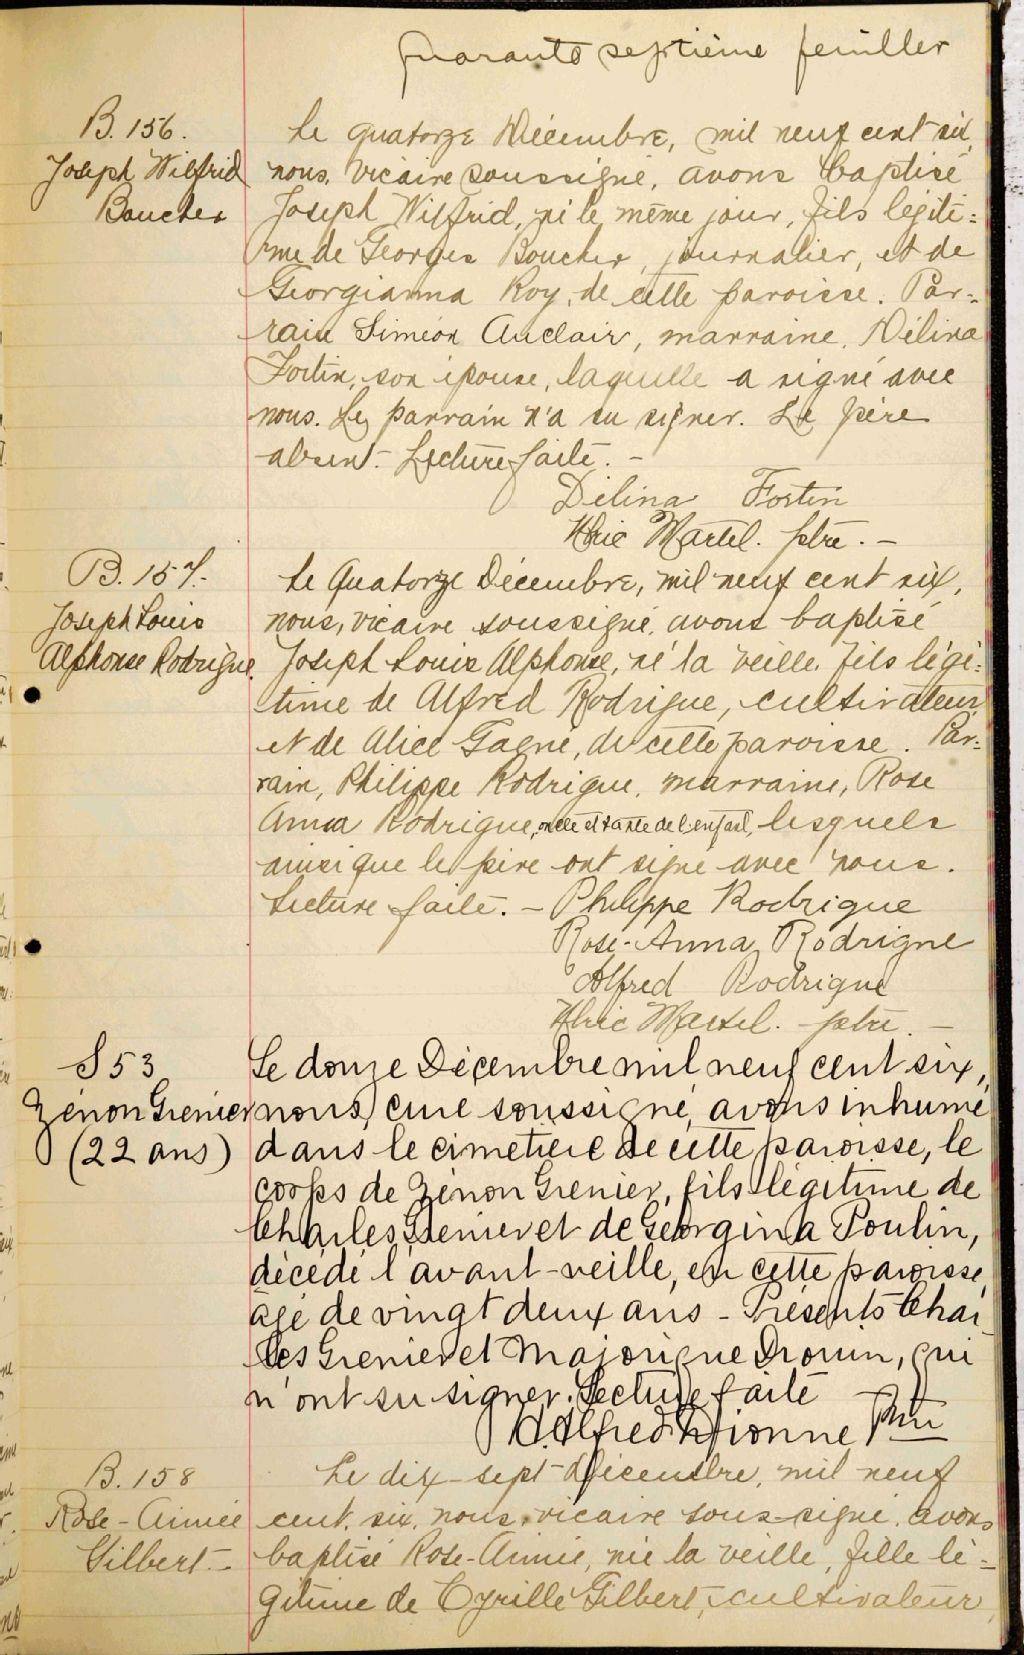 quarante septième feuillet
B. 156.
Joseph Wilfrid
Boucher
Le quatorze Décembre, mil neuf cent six,
nous, vicaire soussigné, avons baptisé
Joseph Wilfrid, né le même jour, fils légiti=
me de Georges Boucher, journalier, et de
Georgianna Roy, de cette paroisse. Par=
rain Siméon Auclair, marraine, Délina
Fortin, son épouse, laquelle a signé avec
nous. Le parrain n'a su signer. Le père
absent. Lecture faite. -
Délina Fortin
Ulric Martel. ptre. -
B. 157.
Joseph Louis
Alphonse Rodrigue.
Le Quatorze Décembre, mil neuf cent six,
nous, vicaire soussigné, avons baptisé
Joseph Louis Alphonse, né la veille, fils légi=
time de Alfred Rodrigue, cultivateur,
et de Alice Gagné, de cette paroisse. Par=
rain, Philippe Rodrigue, marraine, Rose
Anna Rodrigue, oncle et tante de l'enfant, lesquels
ainsi que le père ont signé avec nous.
Lecture faite. - Philippe Rodrigue
Rose-Anna Rodrigue
Alfred Rodrigue
Ulric Martel. ptre. -
S 53
Zénon Grenier
(22 ans)
Le douze Décembre mil neuf cent six,
nous, curé soussigné, avons inhumé
dans le cimetière de cette paroisse, le
corps de Zénon Grenier, fils légitime de
Charles Grenier et de Georgina Poulin,
décédé l'avant-veille, en cette paroisse,
âgé de vingt deux ans - Présents Char
les Grenier et Majorique Drouin, qui
n'ont su signer. Lecture faite
J. Alfred Dionne Ptre
B. 158
Rose-Aimée
Gilbert. -
Le dix-sept Décembre, mil neuf
cent, six, nous, vicaire sous-signé, avons
baptisé Rose-Aimée, née la veille, fille lé=
gitime de Cyrille Gilbert, cultivateur,